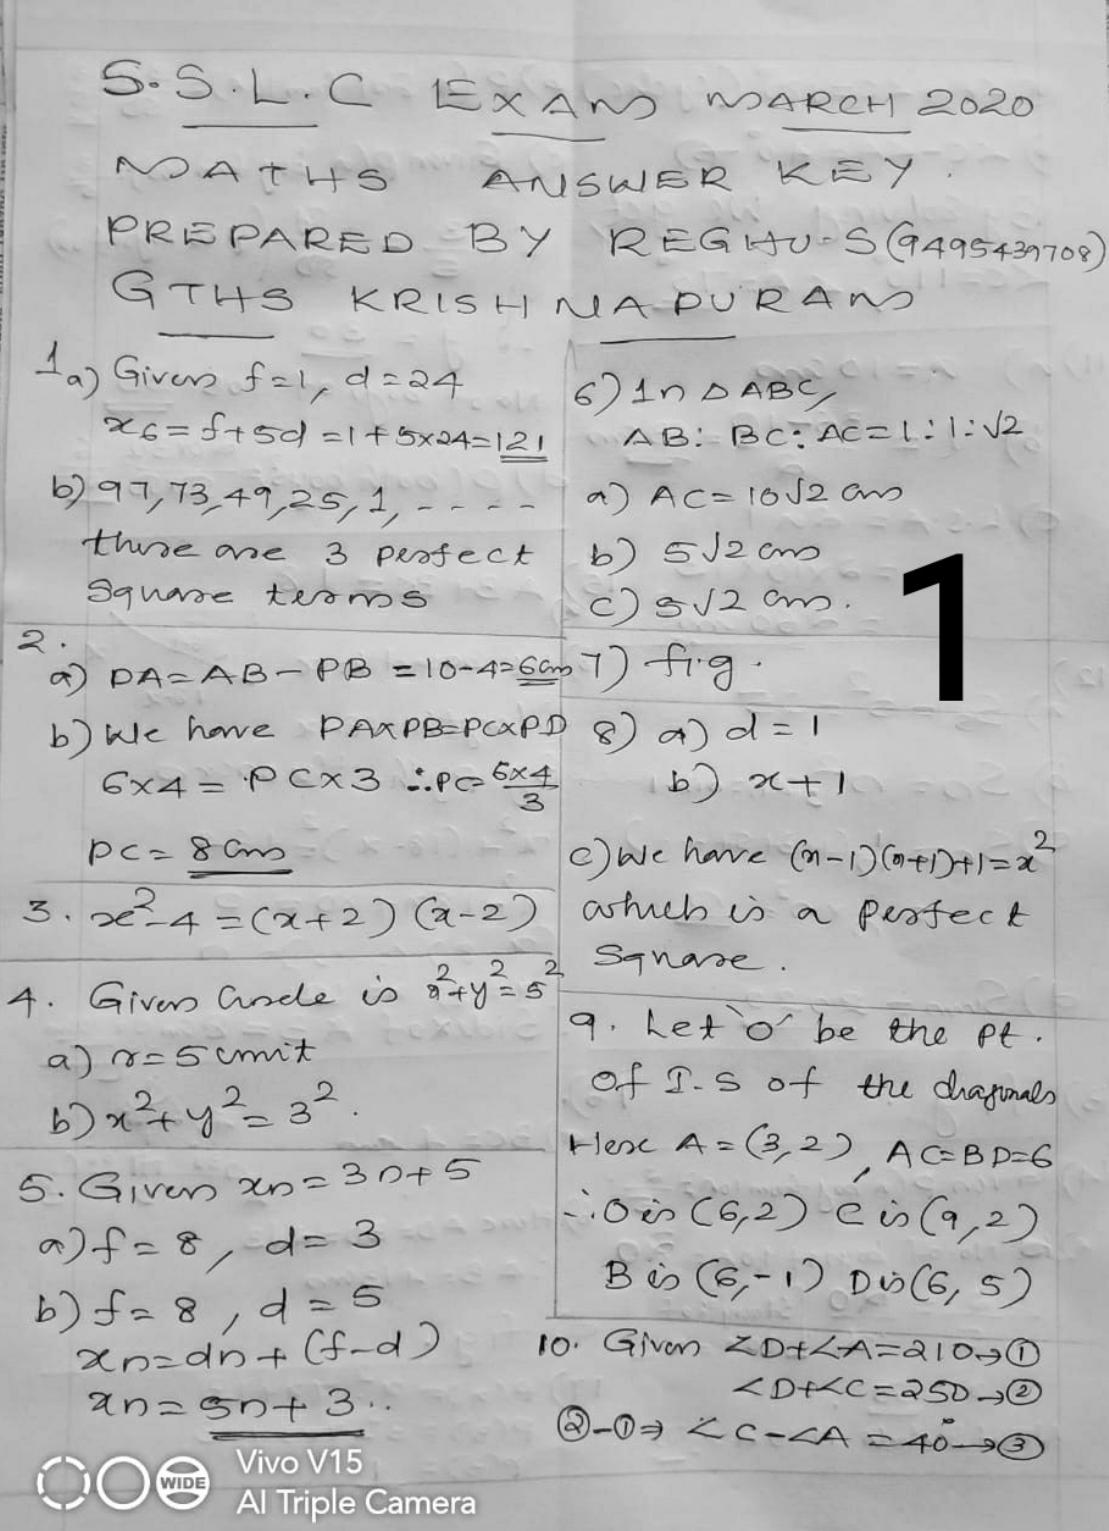 S.S.L.C EXAM MARCH 2020
MATHS ANSWER KEY.
PREPARED BY REGHU-S(9495439708)
GTHS KRISHNAPURAM
1a) Given f=1, d=24
x6 = f+5d = 1+5x24=121
b) 97,73,49,25,1, - - - -
there are 3 perfect
square terms
2.
a) PA=AB-PB =10-4=6cm
b) We have PAxPB=PCxPD
6x4 = PCx3 ∴PC= 6x4/3
PC= 8cm
3. x²-4 =(x+2) (x-2)
4. Given circle is x²+y²=5²
a) r=5 unit
b) x²+y²=3².
5. Given xn=3n+5
a) f=8, d=3
b) f=8, d=5
xn=dn+(f-d)
xn=5n+3..
6) In △ABC,
AB: BC: AC=1:1:√2
a) AC=10√2 cm
b) 5√2 cm
c) 5√2 cm.
1
7) fig.
8) a) d=1
b) x+1
c) We have (n-1)(n+1)+1=x²
which is a perfect
square.
9. Let 'O' be the pt.
of I.S of the diagonals
Here A=(3,2), AC=BD=6
∴O is (6,2) C is (9,2)
B is (6,-1) D is (6,5)
10. Given ∠D+∠A=210→①
∠D+∠C=250→②
②-①⇒ ∠C-∠A =40°→③
WIDE
Vivo V15
AI Triple Camera